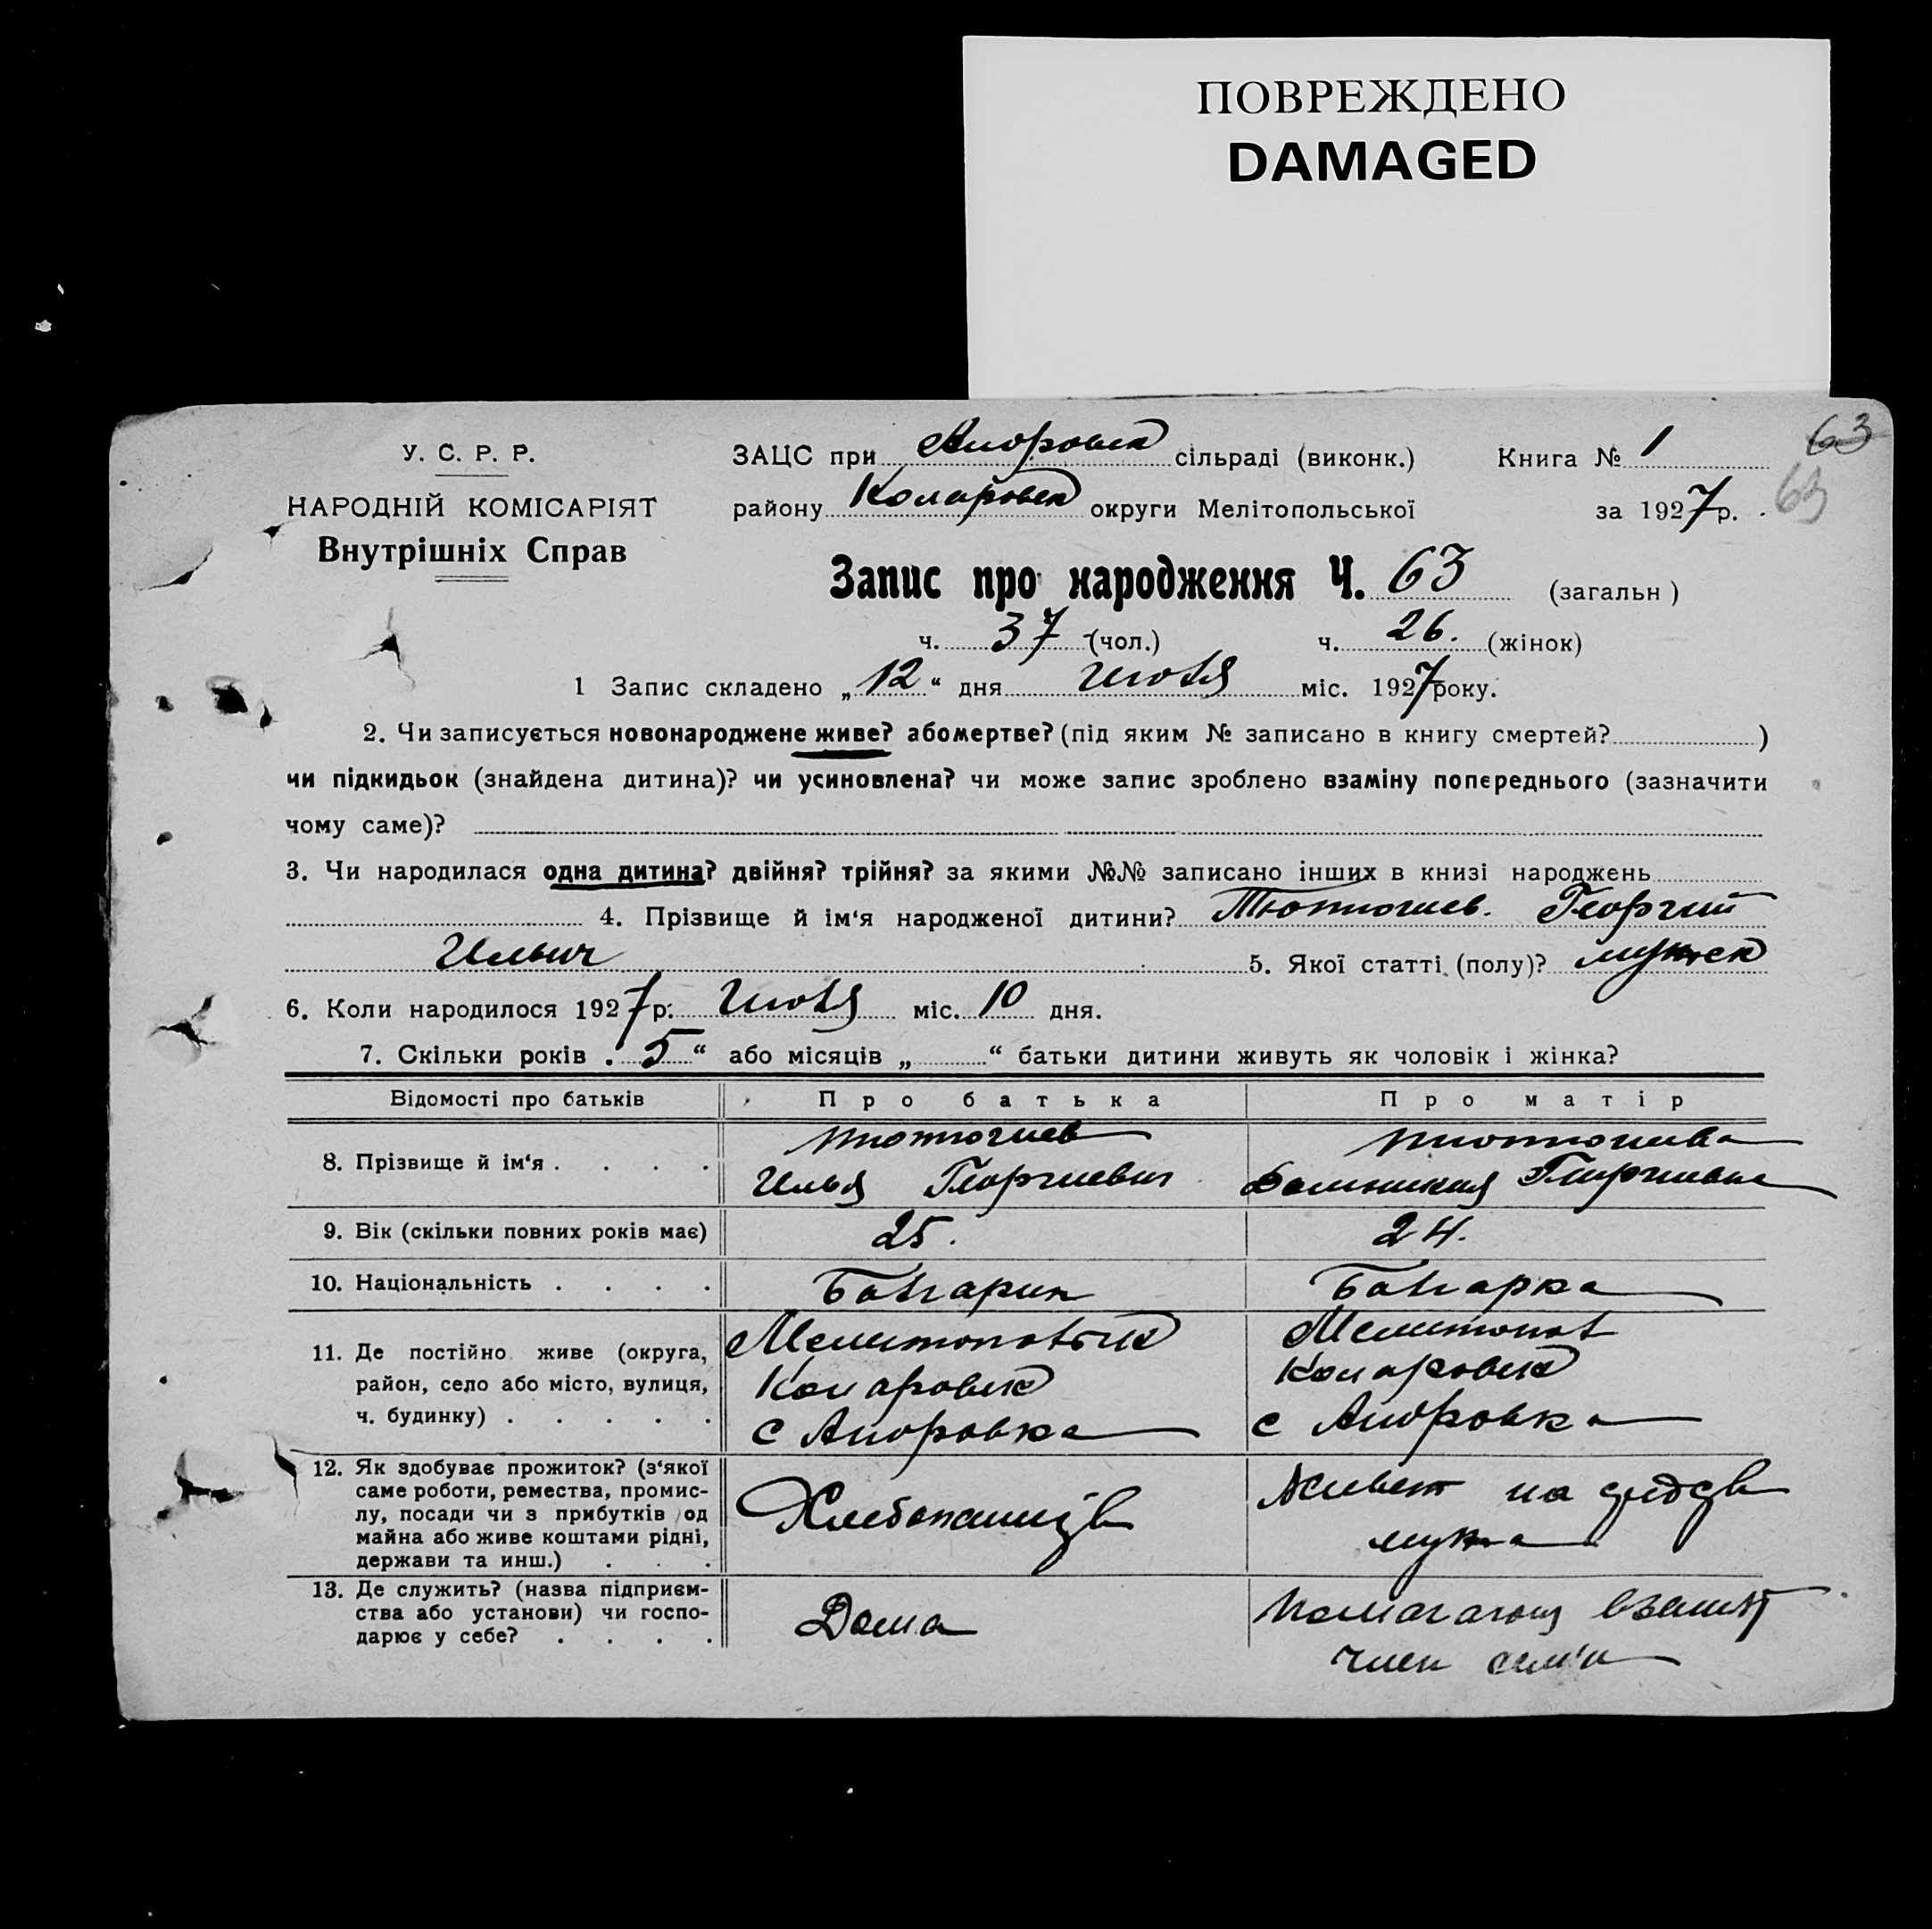 ПОВРЕЖДЕНО
DAMAGED
63
У. С. Р. Р.
ЗАЦС при сільраді (виконк.) Книга № 1
63
НАРОДНІЙ КОМІСАРІЯТ
району Коларовск округи Мелітопольської за 1927 р.
Внутрішніх Справ
Запис про народження Ч. 63 (загальн)
ч. 37 (чол.) ч. 26. (жінок)
1 Запис складено „12“ дня Июля міс. 1927 року.
2. Чи записується новонароджене живе? або мертве? (під яким № записано в книгу смертей? )
чи підкидьок (знайдена дитина)? чи усиновлена? чи може запис зроблено взаміну попереднього (зазначити
чому саме)?
3. Чи народилася одна дитина? двійня? трійня? за якими №№ записано інших в книзі народжень
4. Прізвище й ім‘я народженої дитини? Тютюгиев. Георгий
Ильич 5. Якої статті (полу)? мужск
6. Коли народилося 1927 р. Июля міс. 10 дня.
7. Скільки років „5“ або місяців „ “ батьки дитини живуть як чоловік і жінка?
Відомості про батьків Про батька Про матір
8. Прізвище й ім‘я . . . . Тютюгиев Илья Георгиевич Георгиевна
9. Вік (скільки повних років має) 25. 24.
10. Національність . . . . Болгарин Болгарка
11. Де постійно живе (округа,
район, село або місто, вулиця,
ч. будинку) . . . . .
Мелитопольск
Коларовск
с
Мелитопол
Коларовск
с
12. Як здобуває прожиток? (з‘якої
саме роботи, ремества, промис-
лу, посади чи з прибутків од
майна або живе коштами рідні,
держави та инш.) . . .
Живет на
мужа
13. Де служить? (назва підприєм-
ства або установи) чи госпо-
дарює у себе? . . . .
Дома
член сем'и